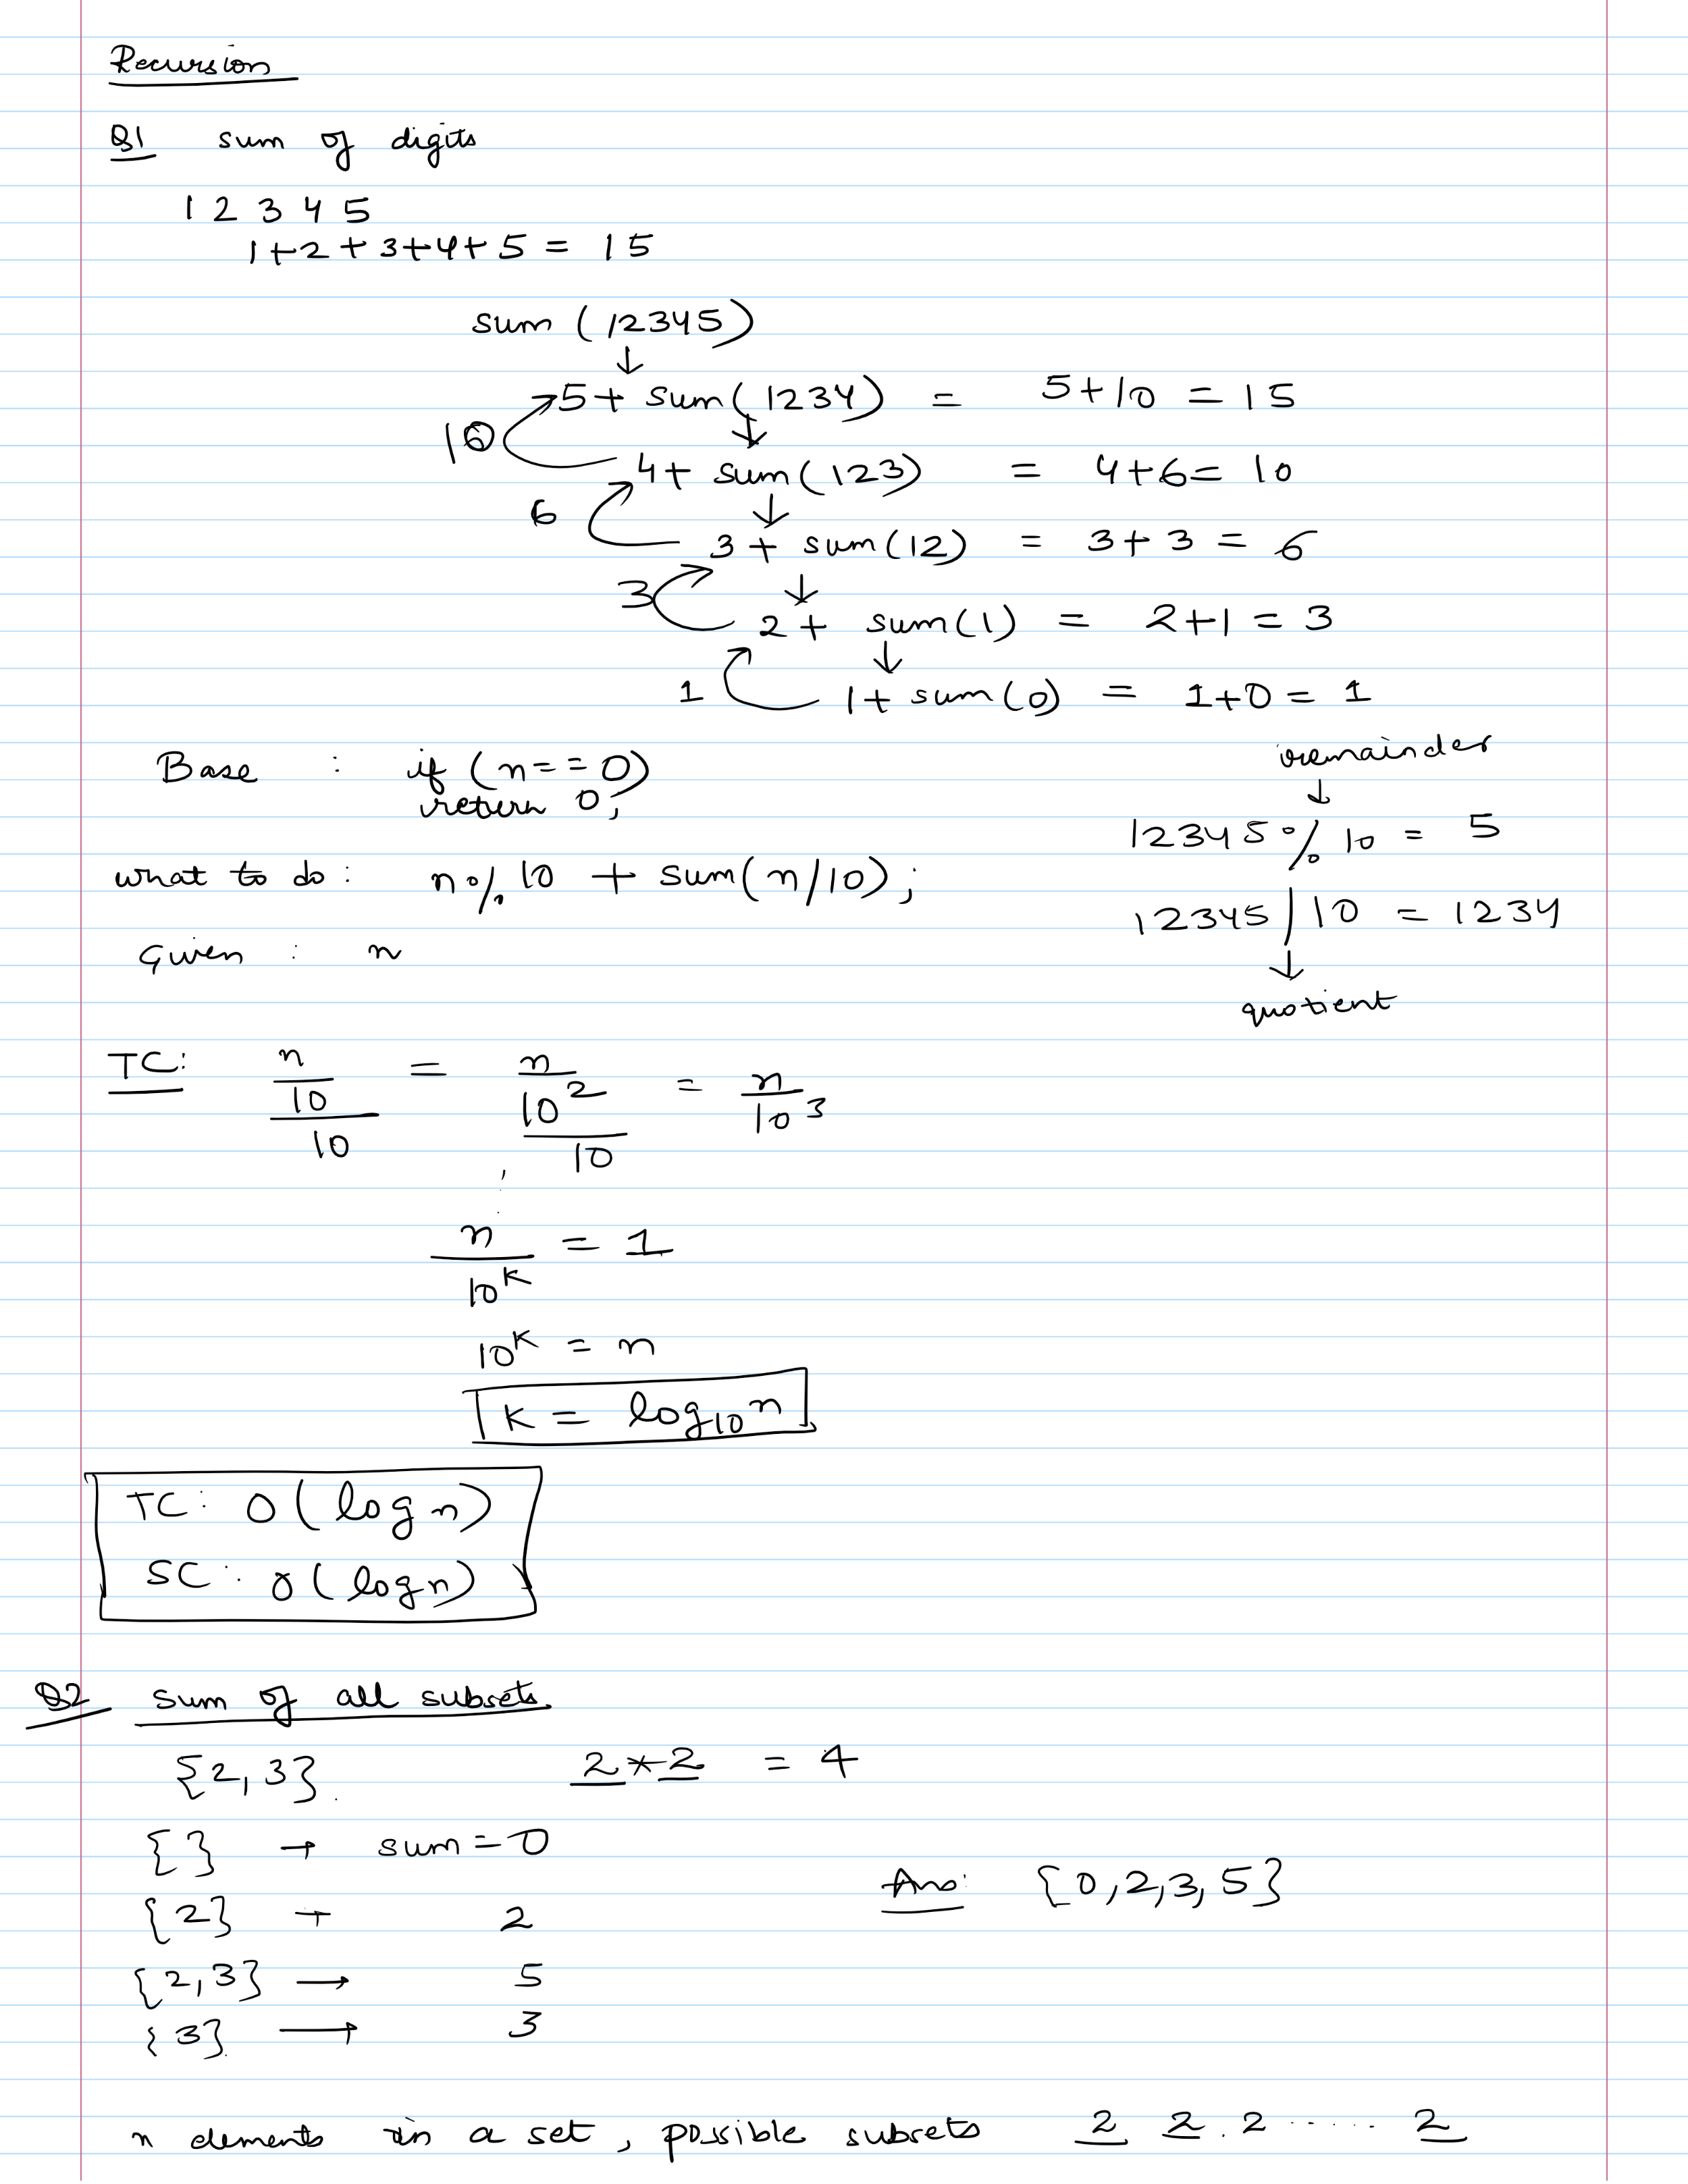 Recursion
Q1 sum of digits
1 2 3 4 5
1+2+3+4+5 = 15
sum (12345)
↓
5+ sum(1234) = 5+10 = 15
10 ↓
4+ sum(123) = 4+6= 10
6 ↓
3+ sum(12) = 3+3 = 6
3 ↓
2+ sum(1) = 2+1 = 3
↓
1 1+ sum(0) = 1+0 = 1
remainder
↓
Base : if (n==0)
return 0;
12345 % 10 = 5
what to do: n % 10 + sum(n/10);
12345 / 10 = 1234
↓
quotient
Given : n
TC: n/10/10 = n/10²/10 = n/10³
n/10^K = 1
10^K = n
K = log₁₀n
TC: O(log n)
SC: O(logn)
Q2 sum of all subsets
{2,3}. 2*2 = 4
{ } → sum=0
Ans: {0,2,3,5}
{2} → 2
{2,3} → 5
{3} → 3
n elements in a set, possible subsets 2 2.2 ..... 2